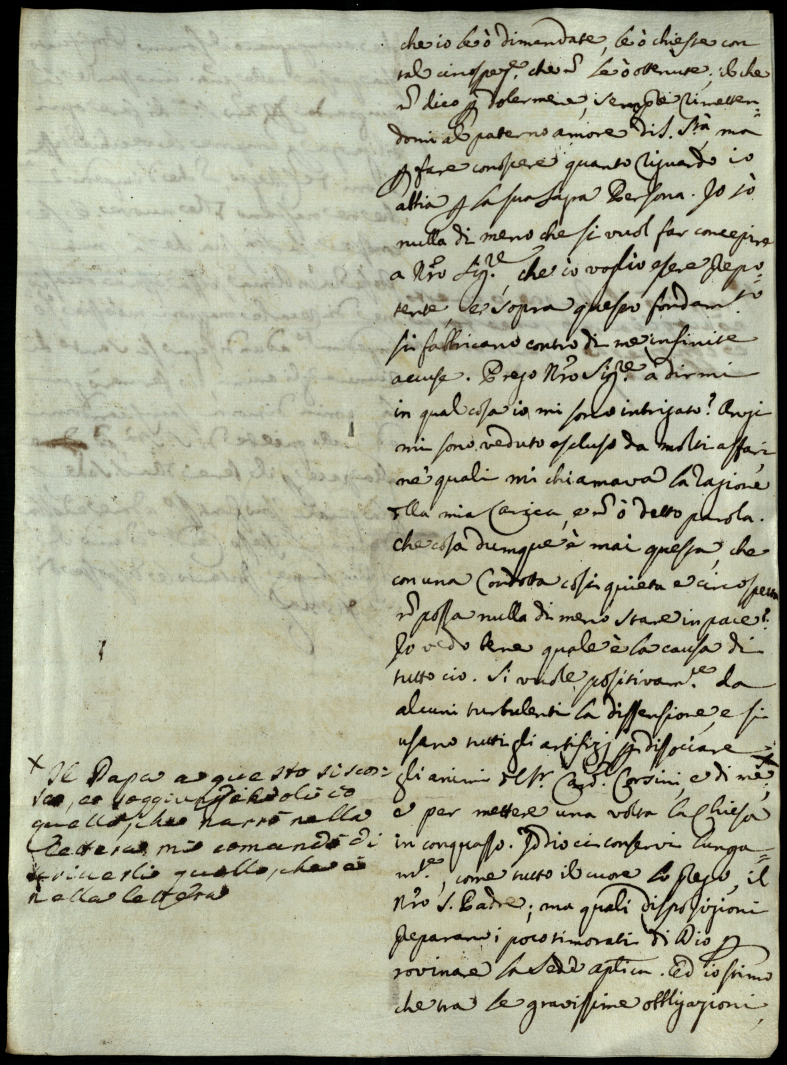 che io le ò dimandate, le ò chieste con
tal circospez.e che ñ le ò ottenute; il che
ñ dico p dolermene, sempre rimetten=
domi al paterno amore di S. S.tà, ma
p fare conoscere quanto riguardo io
abbia p la sua sagra Persona. Io sò
nulla di meno che si vuol far concepire
a Nr̃o Sig.re che io voglio essere prepo=
tente, e sopra questo fondam.to
si fabbricano contro di me infinite
accuse. Prego Nr̃o Sig.re à dirmi
in qual cosa io mi sono intrigato? Anzi
mi sono veduto escluso da molti affari,
ne' quali mi chiamava la ragione
della mia Carica, e ñ ò detto parola.
che cosa dunque è mai questa, che
con una Condotta così quieta e circospetta
ñ possa nulla di meno stare in pace?
Io vedo bene quale è la causa di
tutto ciò. Si vuole positivam.te da
alcuni turbolenti la dissensione, e si
usano tutti gli artifizj p dissociare
gli animi del Sr. Card. Corsini, e di me, x
e per mettere una volta la Chiesa
in conquasso. Iddio ci conservi lunga=
m.te, come tutto il cuore lo prego, il
Nr̃o S. Padre; ma quali disposizioni
preparan i poco timorati di Dio p
rovinare la Sede aplica. Ed io stimo
che tra le gravissime obbligazioni,
x Il Papa a questo si scos=
se, e soggiungendoli io
quello, che narrò nella
lettera, mi comandò di
scriverli quello, che è
nella lettera